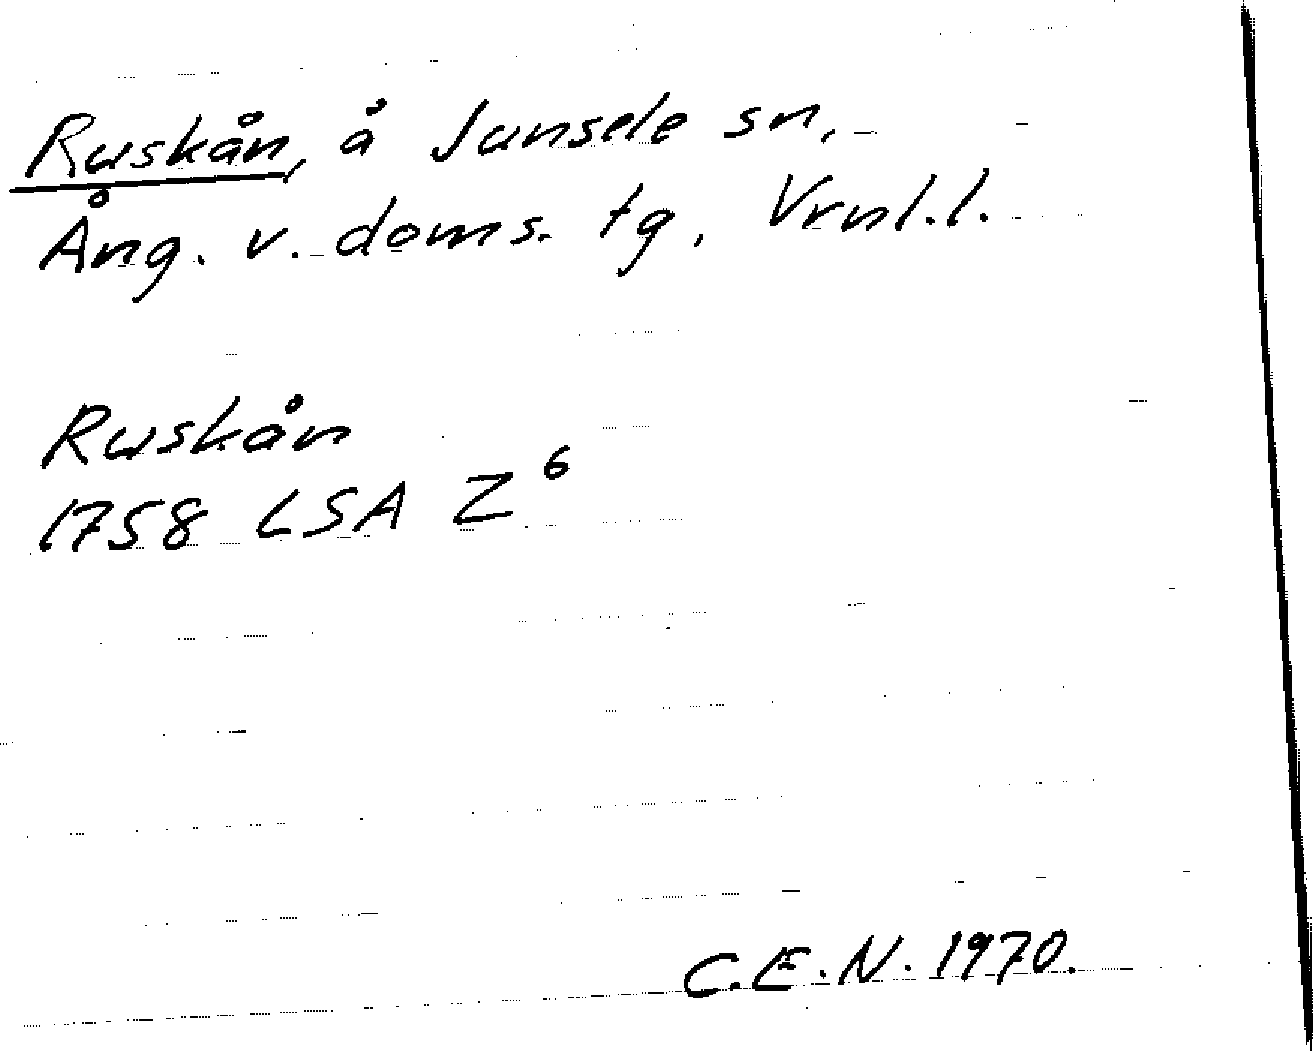 Ruskån, å Junsele sn,
Ång. v. doms. tg, Vrnl.l.
Ruskån
1758 LSA Z⁶
C.E.N. 1970.